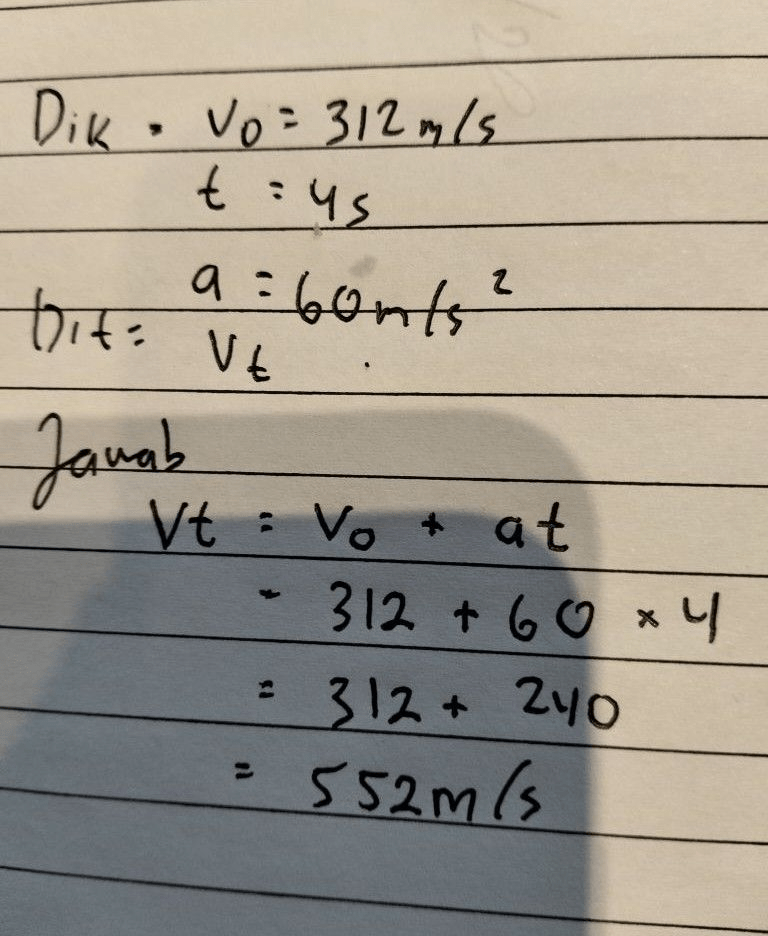 Dik . Vo = 312 m/s
t = 4s
a = 60 m/s²
Dit = Vt
Jawab
Vt = Vo + at
- 312 + 60 × 4
= 312 + 240
= 552 m/s